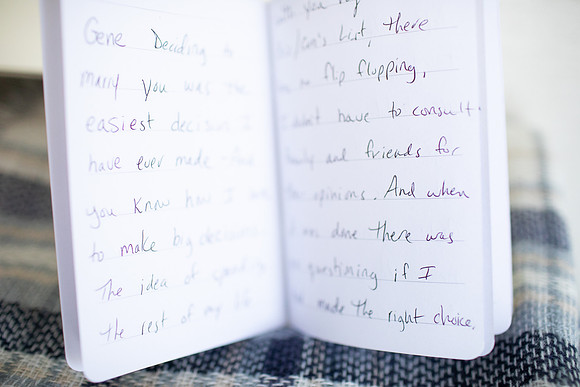 Gene Deciding to
marry you was the
easiest decision I
have ever made
you know how I
to make big
The idea of
the rest of my life
list, there
no flip flopping,
I didn't have to consult
family and friends for
opinions. And when
it was done there was
questioning if I
made the right choice.